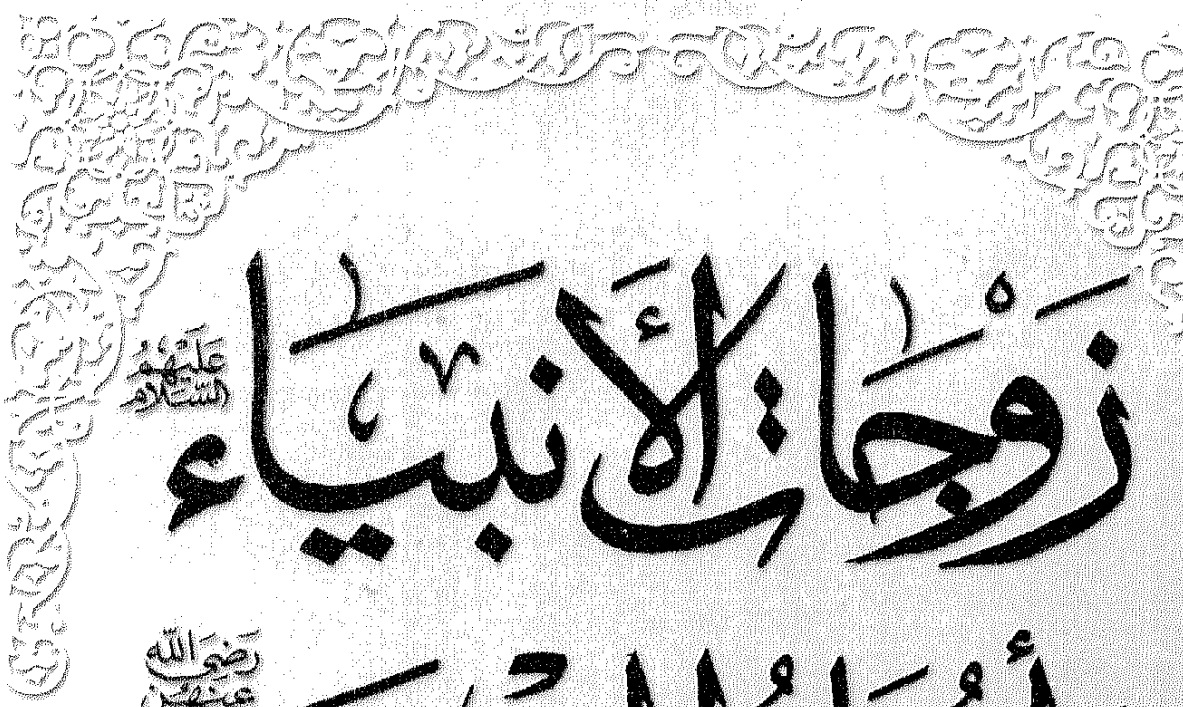 زَوْجَاتُ الْأَنْبِيَاءِ عَلَيْهِمُ السَّلَام
رَضِيَ اللّٰه عَنْهُنَّ